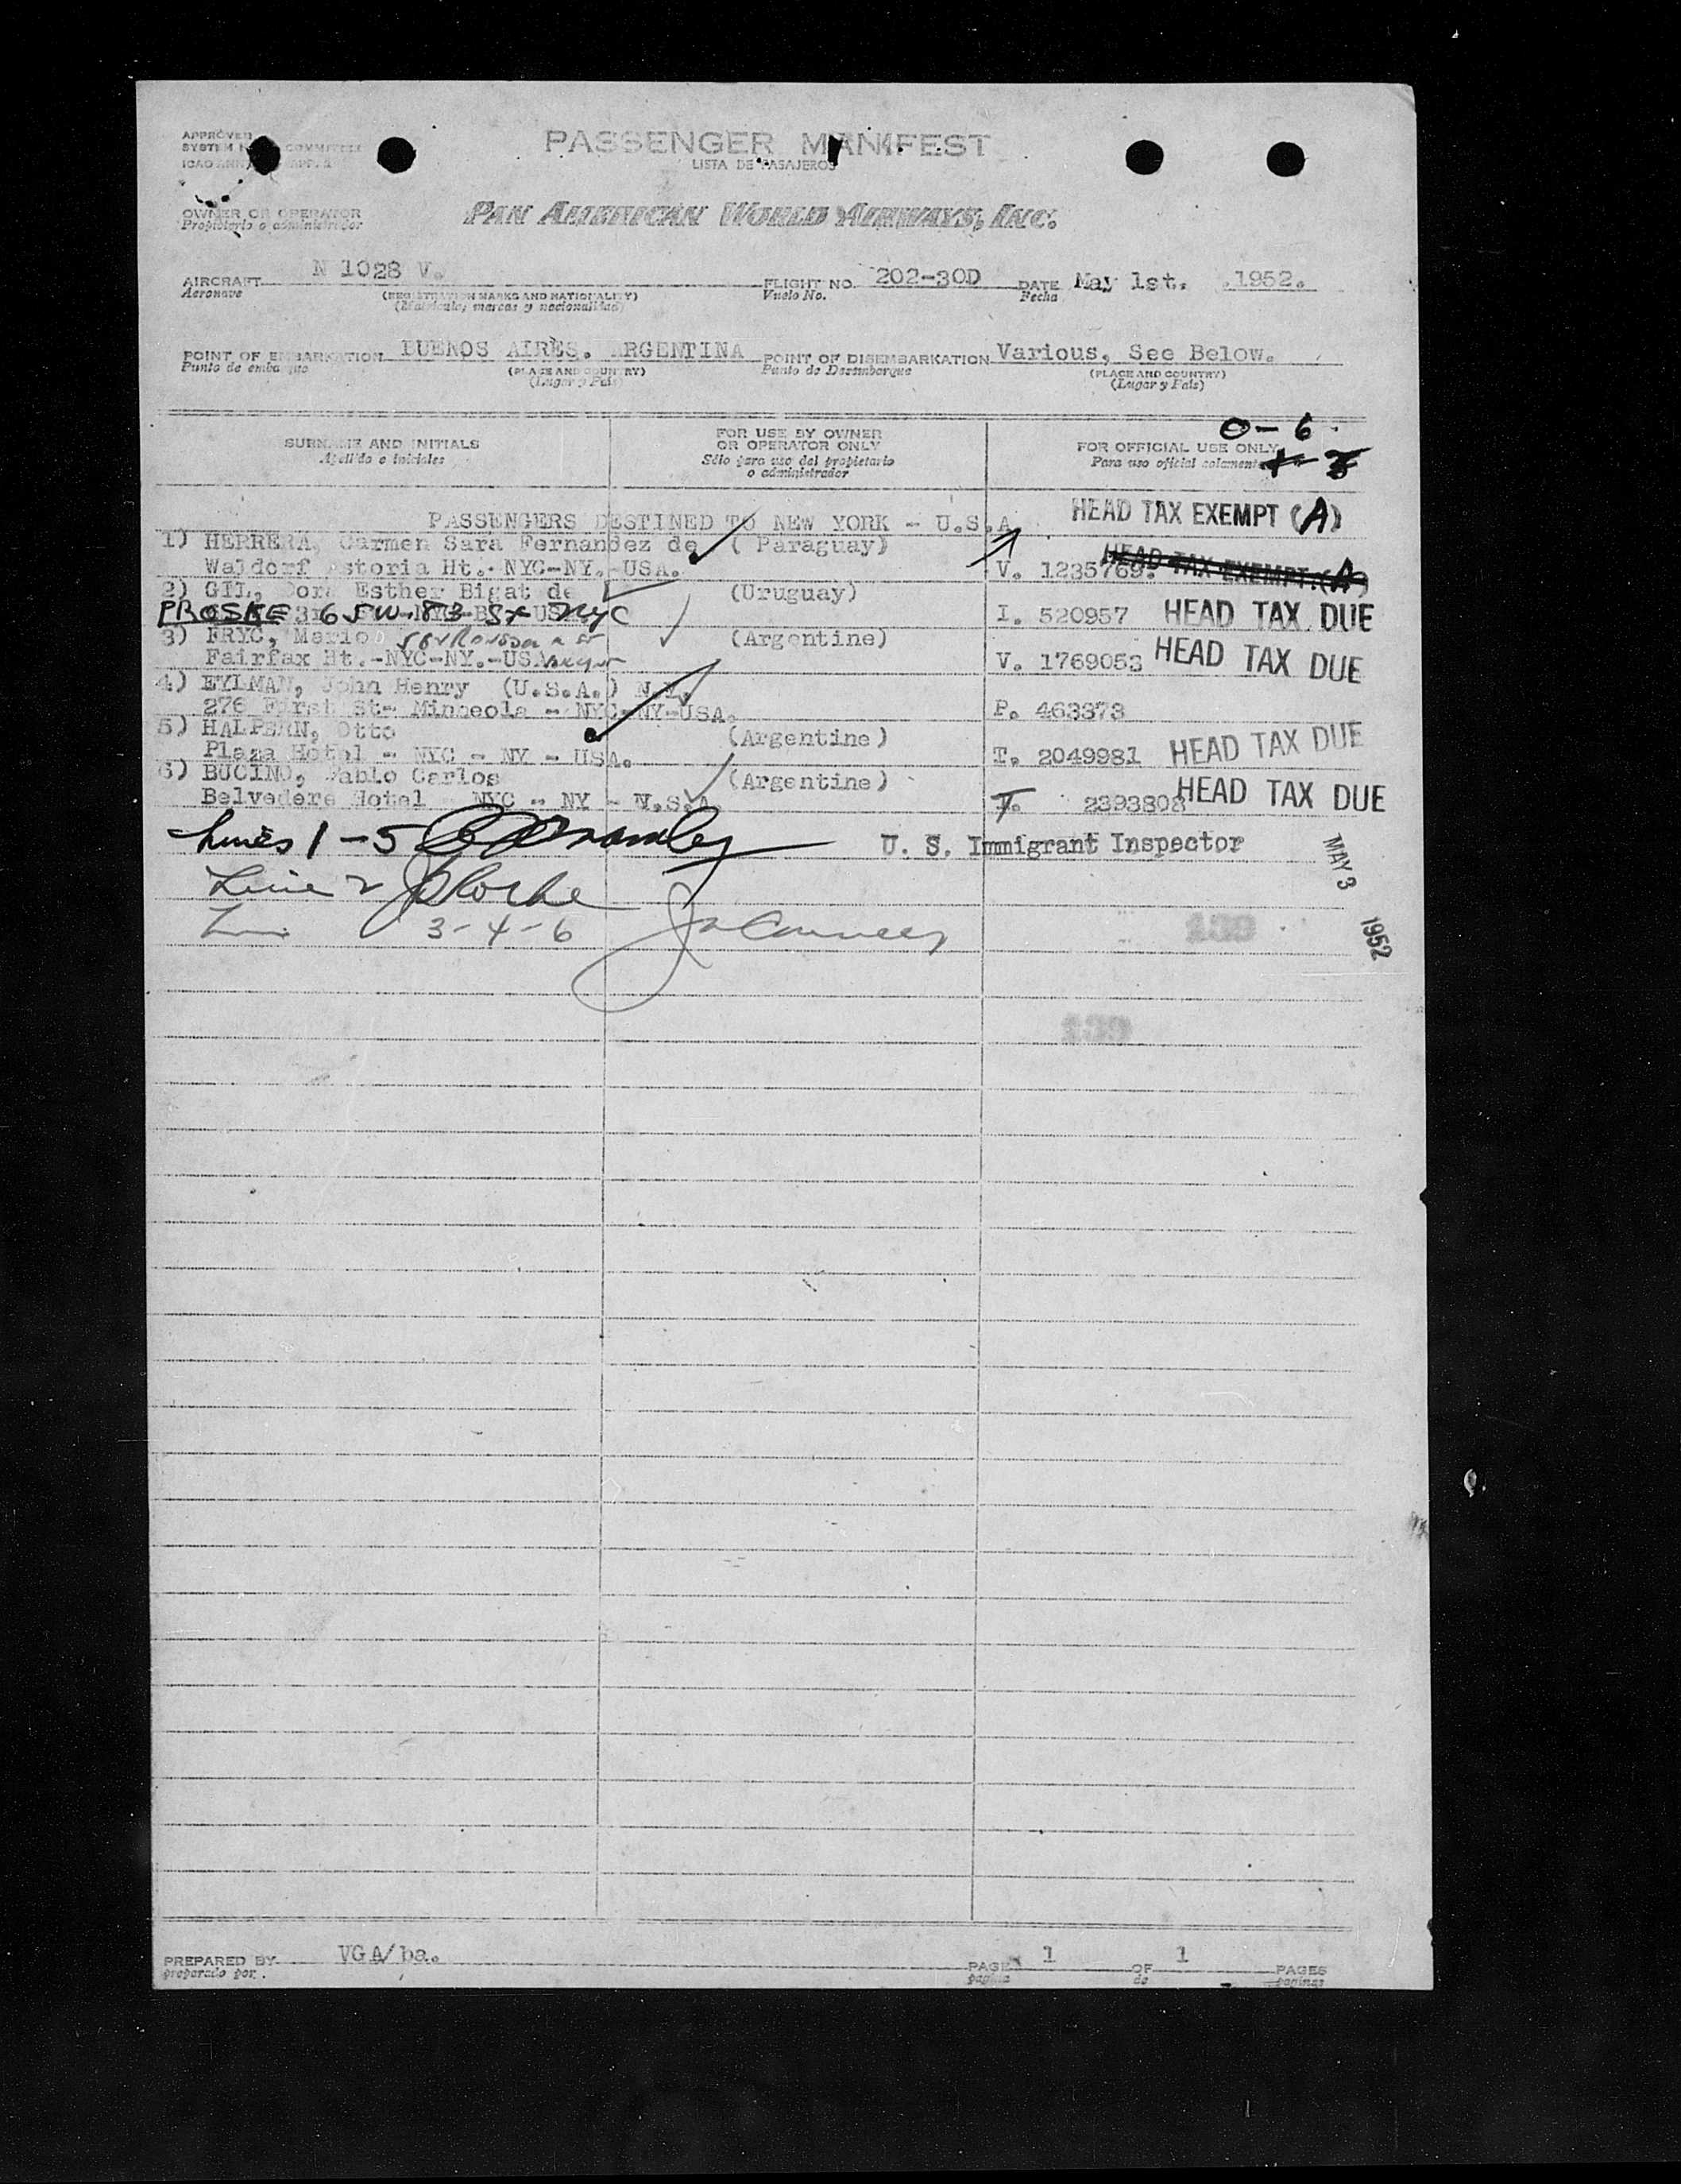 APPROVED
SYSTEM COMMITTEE
PASSENGER MANIFEST
LISTA DE PASAJEROS
OWNER OR OPERATOR
Propietario o administrador
PAN AMERICAN WORLD AIRWAYS, INC.
AIRCRAFT N 1028 V. FLIGHT NO. 202-30D DATE May 1st. .1952.
Aeronave (REGISTRATION MARKS AND NATIONALITY) Vuelo No. Fecha
(Matricula, marcas y nacionalidad)
POINT OF EMBARKATION BUENOS AIRES. ARGENTINA POINT OF DISEMBARKATION Various, See Below.
Punto de embarque (PLACE AND COUNTRY) Punto de Desembarque (PLACE AND COUNTRY)
(Lugar y Pais) (Lugar y Pais)
0-6
SURNAME AND INITIALS FOR USE BY OWNER OR OPERATOR ONLY FOR OFFICIAL USE ONLY
Apellido e iniciales Sólo para uso del propietario o administrador Para uso oficial solamente
PASSENGERS DESTINED TO NEW YORK - U.S.A. HEAD TAX EXEMPT (A)
1) HERRERA, Carmen Sara Fernandez de ( Paraguay) HEAD TAX EXEMPT (A)
Waldorf Astoria Ht. NYC-NY.-USA. V. 1235769.
2) GIL, Dora Esther Bigat de (Uruguay)
PROSKE 65 W. 83 St NYC I. 520957 HEAD TAX DUE
3) FRYC, Mario (Argentine)
Fairfax Ht.-NYC-NY.-USA V. 1769053 HEAD TAX DUE
4) EYLMAN, John Henry (U.S.A.) N.Y.
276 First St- Mineola - NYC-NY-USA. P. 463373
5) HALPERN, Otto (Argentine)
Plaza Hotel - NYC - NY - USA. T. 2049981 HEAD TAX DUE
6) BUCINO, Pablo Carlos (Argentine)
Belvedere Hotel NYC - NY - U.S.A. T. 2393808 HEAD TAX DUE
Lines 1-5 U. S. Immigrant Inspector
MAY 3 1952
Line 2
3-4-6
139
139
PREPARED BY VGA/ba. PAGE 1 OF 1 PAGES
preparado por. pagina de paginas